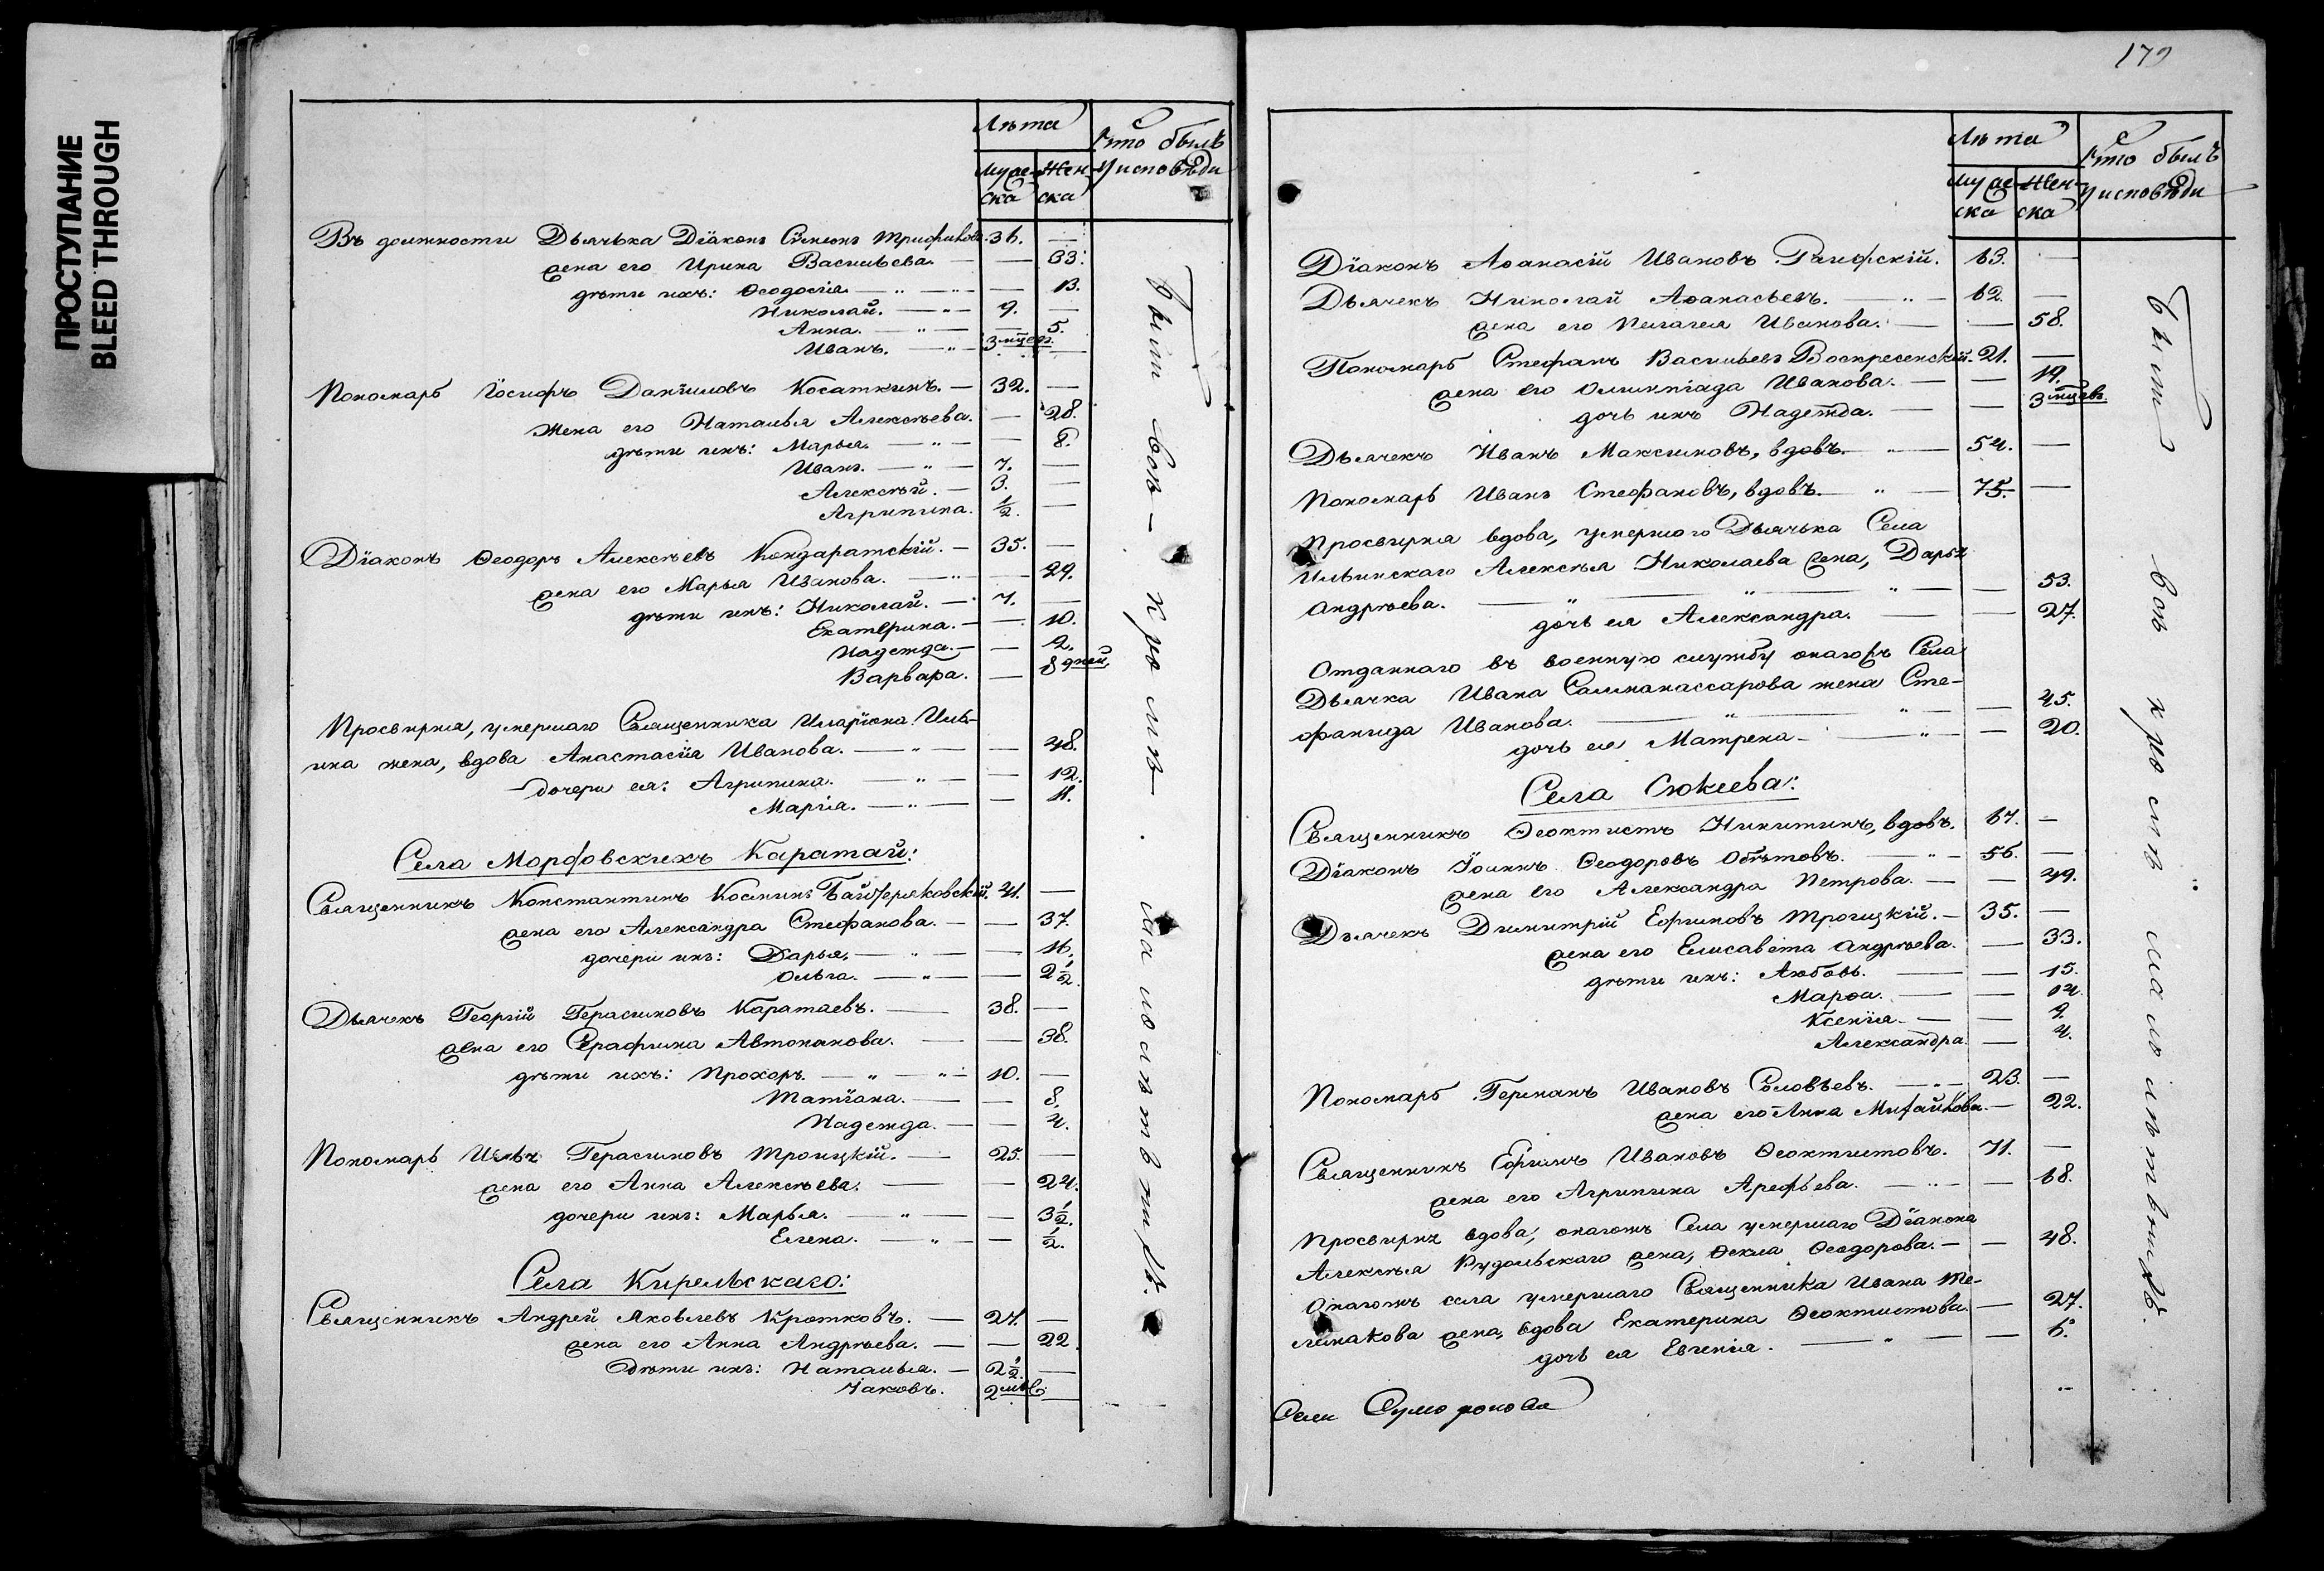 ПРОСТУПАНИЕ
BLEED THROUGH
Лѣта
Кто былъ
у исповѣди
Муже-
ска
Жен-
ска
Въ должности Дьячька Дїаконъ Сѷмеонъ Трифиновъ. 36. —
жена его Ирина Васильева. — — 33.
дѣти ихъ: Ѳеодосїя. — " — " — — 13.
Николай. — " — 9. —
Анна. — " — — 5.
Иванъ. — " — 3 мѣсяц. —
Пономарь Іосифъ Данїиловъ Косаткинъ. — 32. —
Жена его Наталья Алексѣева. — 28.
дѣти ихъ: Марья. — " — — 8.
Иванъ. — " — 7. —
Алексѣй. — 3. —
Агрипина. ½. —
Дїаконъ Ѳеодоръ Алексѣевъ Кондаратскїй. — 35. —
жена его Марья Иванова. — " — — 29.
дѣти ихъ: Николай. — 7. —
Екатерина. — — 10.
Надежда. — — 2.
Варвара. — 8 дней.
Просвирня, умершаго Священника Иларїона Иль-
ина жена, вдова Анастасїя Иванова. — " — — 48.
дочери ея: Агрипина. — " — — 12.
Марїя. — " — — 11.
Села Мордовскихъ Каратай:
Священникъ Константинъ Косминъ Байтеряковскїй. 41. —
жена его Александра Стефанова. — — 37.
дочери ихъ: Дарья. — " — — 16.
Ольга. — " — — 2½.
Дьячекъ Георгїй Герасимовъ Каратаевъ. — 38. —
жена его Серафима Автономова. — — 38.
дѣти ихъ: Прохоръ. — " — " — 10. —
Татїана. — — 8.
Надежда. — — 4.
Пономарь Илья Герасимовъ Троицкїй. — 25. —
жена его Анна Алексѣева. — — 24.
дочери ихъ: Марья. — " — — 3½.
Елена. — " — — ½.
Села Кирельскаго:
Священникъ Андрей Яковлевъ Кротковъ. — 27. —
жена его Анна Андрѣева. — — 22.
Дѣти ихъ: Наталья. — 2½. —
Іаковъ. 2 мѣс. —
Были всѣ кромѣ малолѣтныхъ.
179
Лѣта
Кто былъ
у исповѣди
Муже-
ска
Жен-
ска
Дїаконъ Аѳанасїй Ивановъ Раифскїй. 63. —
Дьячекъ Николай Аѳанасьевъ. — " — 62. —
жена его Пелагея Иванова. — — 58.
Пономарь Стефанъ Васильевъ Воскресенскїй. 21. —
жена его Олимпїада Иванова. — — 19.
дочь ихъ Надежда. — — 3 мѣсяц.
Дьячекъ Иванъ Максимовъ, вдовъ. — " — 54. —
Пономарь Иванъ Стефановъ, вдовъ. — " — 75. —
Просвирня вдова, умершаго Дьячька Села
Ильинскаго Алексѣя Николаева жена, Дарья
Андрѣева. — " — " — " — — 53.
дочь ея Александра. — — 27.
Отданнаго въ военную службу онагожъ Села
Дьячка Ивана Салманассарова жена Сте-
фанида Иванова. — " — " — — 45.
дочь ея Матрена — " — — 20.
Села Сюкеева:
Священникъ Ѳеоктистъ Никитинъ, вдовъ. 67. —
Дїаконъ Іоаннъ Ѳеодоровъ Обѣтовъ. — " — 56. —
жена его Александра Петрова. — — 49.
Дьячекъ Димитрїй Ефимовъ Троицкїй. — 35. —
жена его Елисавета Андрѣева. — 33.
дѣти ихъ: Любовь. — — 15.
Марѳа. — — 14.
Ксенїя. — — 9.
Александра. — 4.
Пономарь Германъ Ивановъ Соловьевъ. — " — 23. —
жена его Анна Михайлова. — 22.
Священникъ Ефимъ Ивановъ Ѳеоктистовъ. 71. —
жена его Агрипина Арефьева. — " — — 68.
Просвирня вдова, онагожъ Села умершаго Дїакона
Алексѣя Рудольскаго жена, Ѳекла Ѳеодорова. — — 48.
Онагожъ села умершаго Священника Ивана Те-
жена, вдова Екатерина Ѳеоктистова. — 27.
дочь ея Евгенїя. — " — — 6.
Были всѣ кромѣ малолѣтныхъ.
Села Сумороково